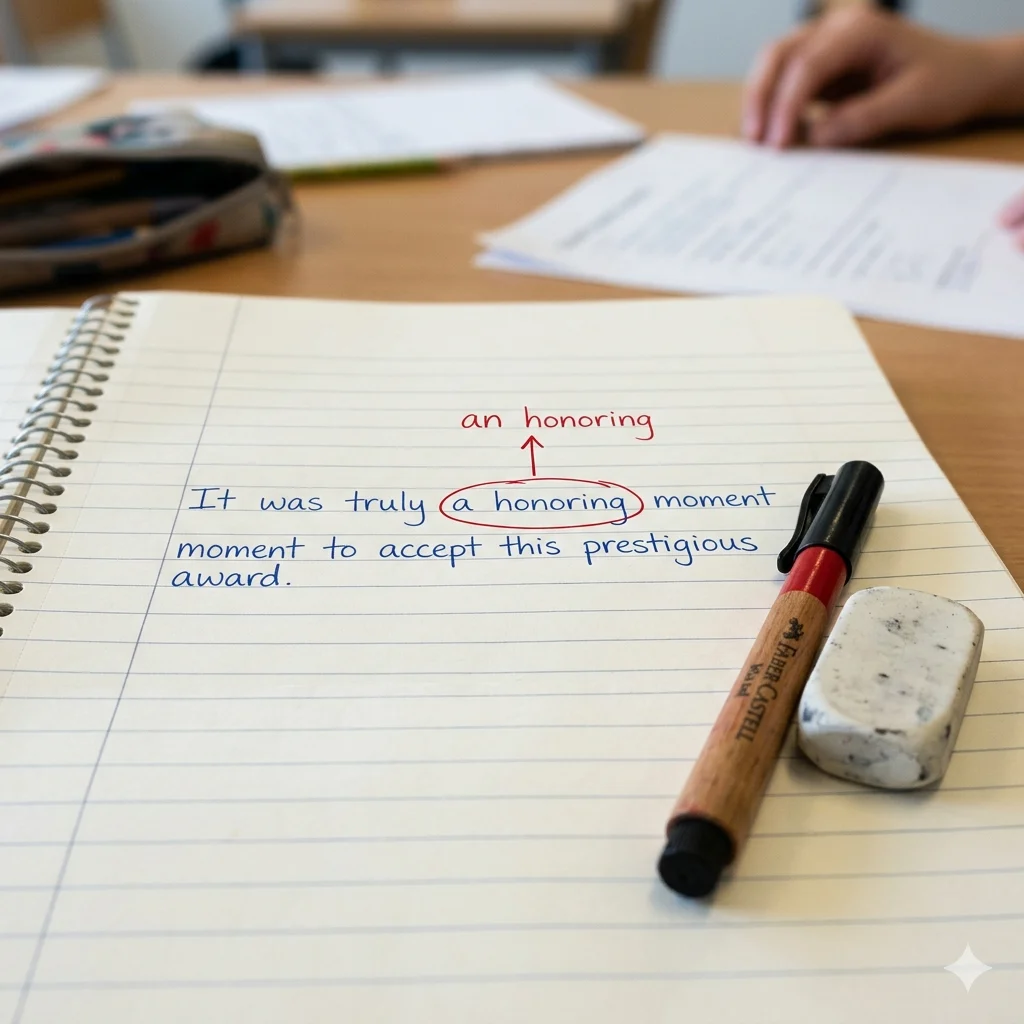 an honoring
It was truly a honoring moment
moment to accept this prestigious
award.
FABER-CASTELL